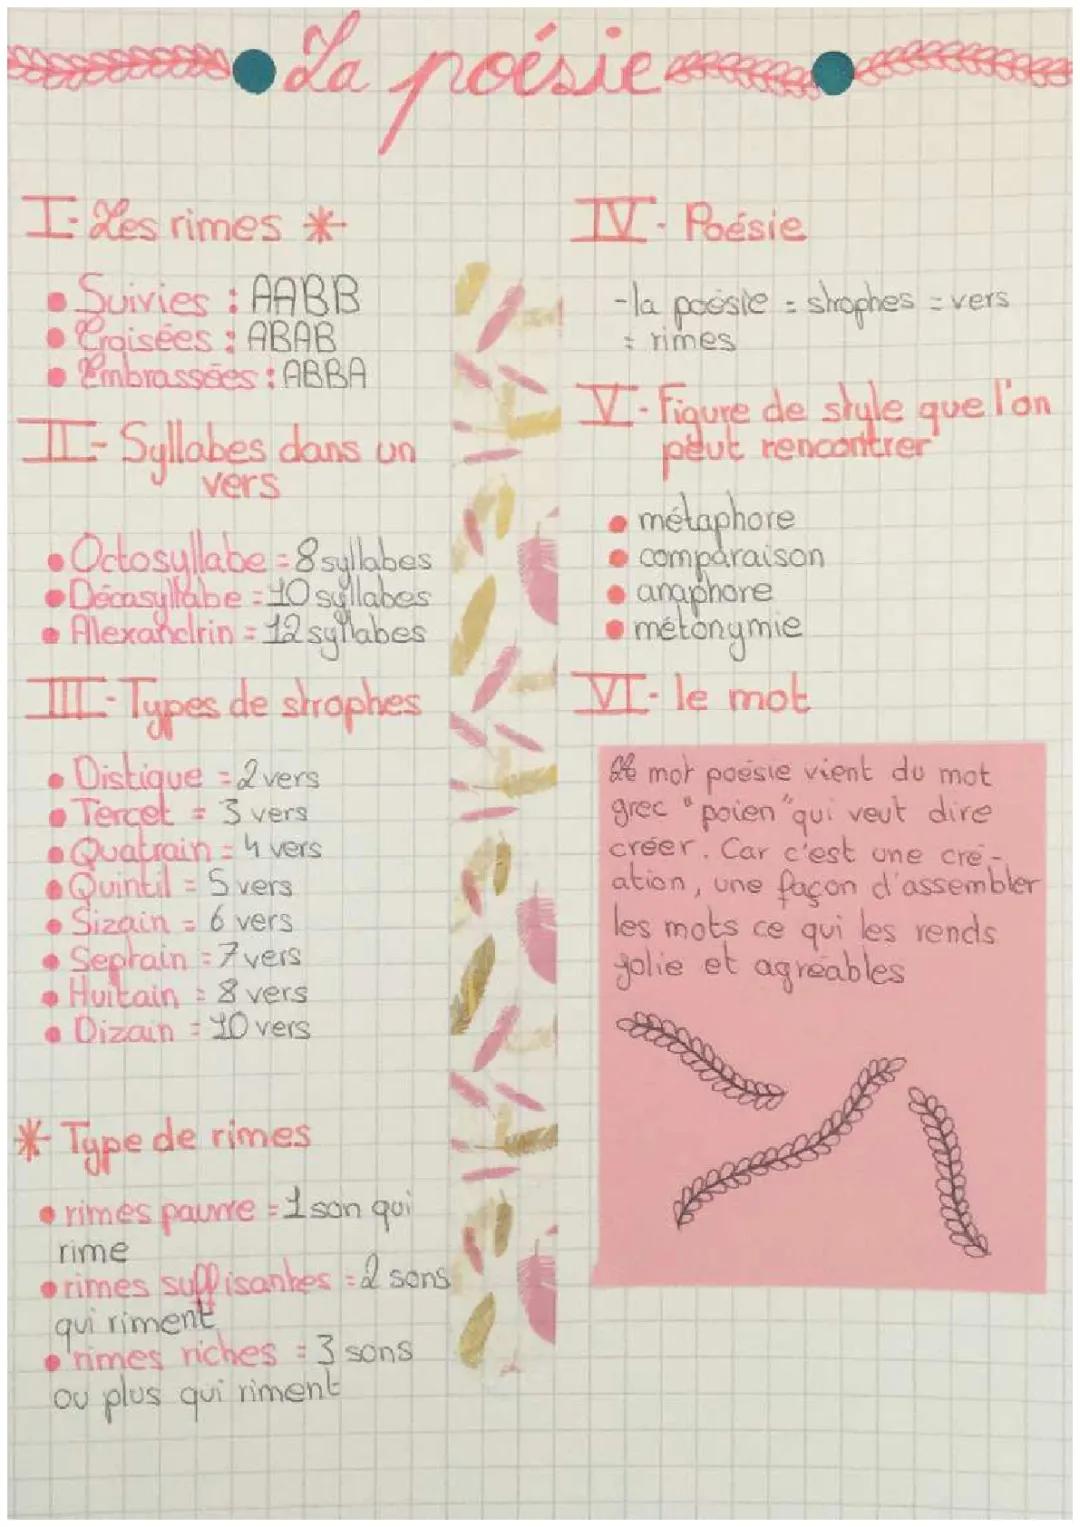 La poésie
I- Les rimes *
• Suivies : AABB
• Croisées : ABAB
• Embrassées : ABBA
II- Syllabes dans un
vers
• Octosyllabe = 8 syllabes
• Décasyllabe = 10 syllabes
• Alexandrin = 12 syllabes
III- Types de strophes
• Distique = 2 vers
• Tercet = 3 vers
• Quatrain = 4 vers
• Quintil = 5 vers
• Sizain = 6 vers
• Septain = 7 vers
• Huitain = 8 vers
• Dizain = 10 vers
* Type de rimes
• rimes pauvre = 1 son qui
rime
• rimes suffisantes = 2 sons
qui riment
• rimes riches = 3 sons
ou plus qui riment
IV- Poésie
-la poésie = strophes = vers
= rimes
V- Figure de style que l'on
peut rencontrer
• métaphore
• comparaison
• anaphore
• métonymie
VI- le mot
Le mot poésie vient du mot
grec "poien" qui veut dire
créer. Car c'est une cré-
ation, une façon d'assembler
les mots ce qui les rends
jolie et agréables